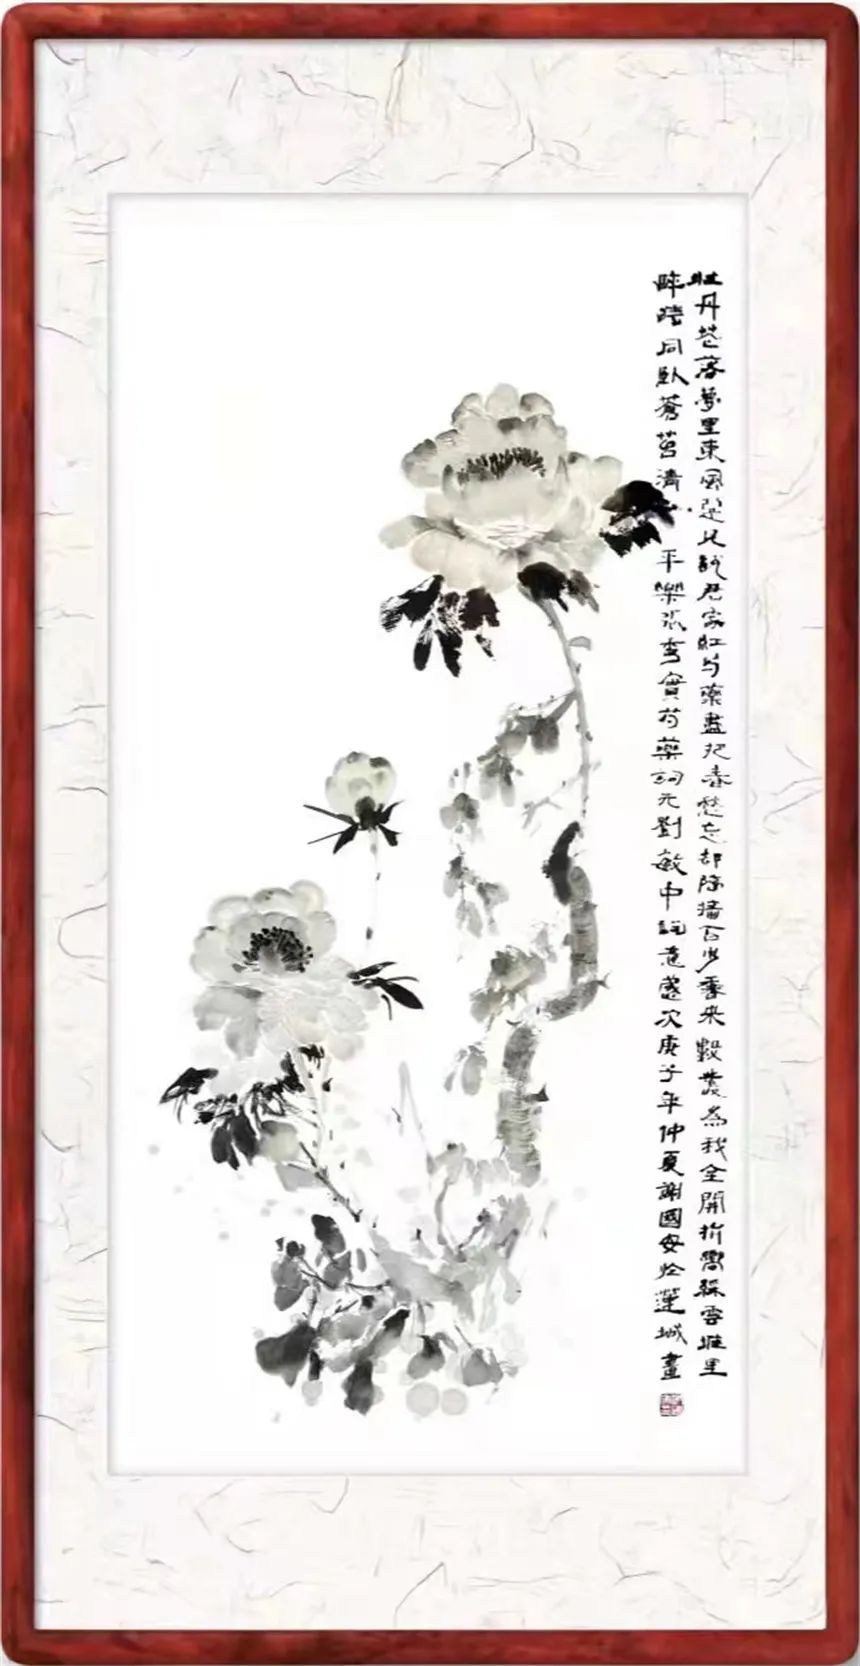 牡丹花落夢里東風惡見説君家紅芍藥盡把春愁忘却隔墻百步香来數叢為我全開拚嚮綵雲堆里
醉時同臥蒼苔清平樂張秀實芍藥詞元劉敏中詞意歲次庚子年仲夏謝國安於蓮城畫